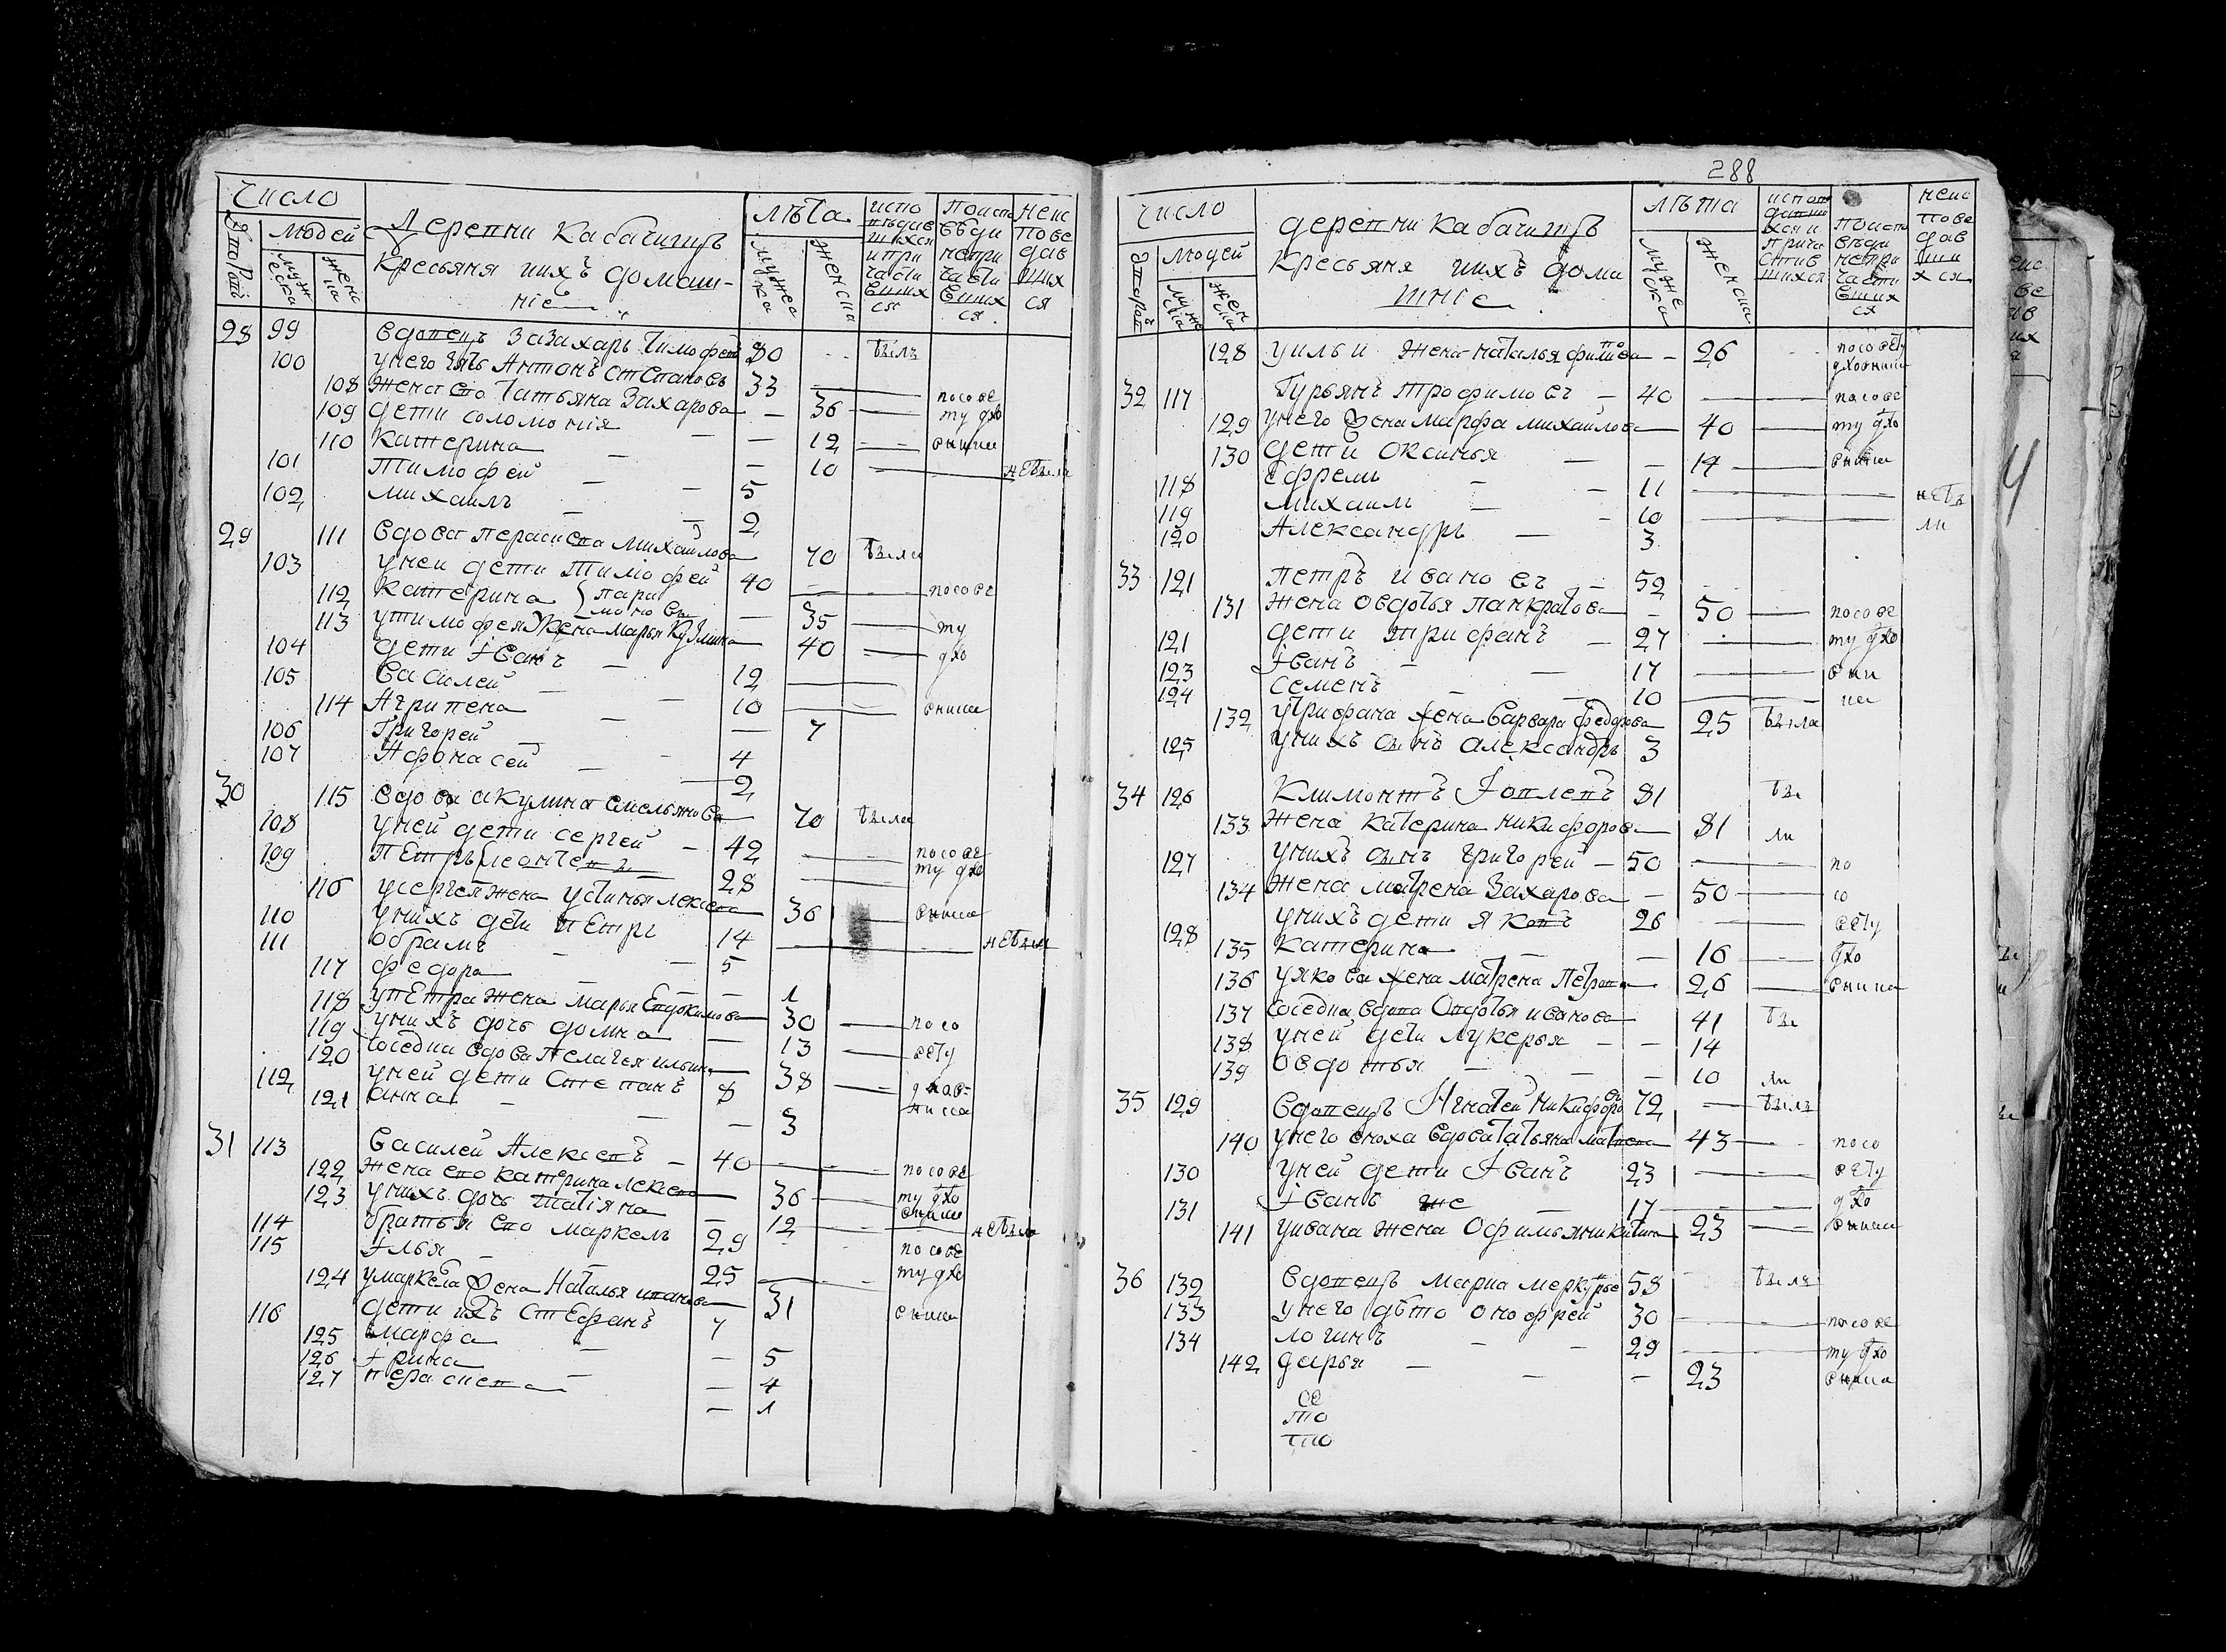 число
людей
муж ска
женс ка
Деревни Кабачищъ
Кресьяня ихъ домаш-
ніе
лѣта
мужеска
женска
испо
вѣдав
шихся
и при
части
вших
ся
поиспо
вѣди
непри
части
вших
ся
неис
пове
дав
ших
ся
28 99 вдовецъ Захаръ Тимофеевъ 80 былъ
100 у него зять Антонъ Степановъ 33
108 жена его Татьяна Захарова 36 посове
109 дети соломонія 12 ту дхо
110 катерина 10 вниш
101 Тимофей 5 не были
102 михаилъ 2
29 111 вдова Парасковья михаилова 70 была
103 у ней дети Тимофей 40 посове
112 катерина 35 ту
113 у тимофея жена марья Кузмина 40 дхо
104 дети Іванъ 12
105 василей 10 вниша
114 Агрипена 7
106 Григорей 4
107 Афонасей 2
30 115 вдова акулина емельянова 70 была
108 у ней дети сергей 42 посове
109 Петръ 28 ту дхо
116 у сергея жена устинья 36 вниша
110 у нихъ дети Петръ 14 не были
111 обрамъ 5
117 федора 1
118 у Петра жена марья Евдокимова 30 посо
119 у нихъ дочь домна 13 вѣту
120 соседка вдова Пелагея ильина 38 дхов
112 у ней дети Степанъ 8 ниша
121 анна 3
31 113 василей Алексевъ 40 посове
122 жена ево катерина 36 ту дхо
123 у нихъ дочь татіяна 12 вниш не была
114 братья ево маркелъ 29 посове
115 Ілья 25 ту дхо
124 у маркела жена Наталья иванова 31 вниша
116 дети ихъ Стефанъ 7
125 марфа 5
126 Ірина 4
127 парасковья 1
288
число
двороч
людей
муже ска
жен ска
деревни кабачищъ
Кресьяня ихъ дома
шніе
лѣта
мужеска
женска
поиспо
вѣди
непри
части
вших
ся
неис
пове
дав
ши
хся
128 у ильи жена наталья филипова 26 посовѣту дховниш
32 117 Гурьянъ трофимовъ 40 посове
129 у него жена марфа михайлова 40 ту дхо
130 дети оксинья 14 вниш
118 ефремъ 11 не бы
119 михаилъ 10 ли
120 Александръ 3
33 121 петръ ивановъ 52
131 жена овдотья панкратова 50 посове
121 дети трифанъ 27 ту дхо
123 Іванъ 17 вни
124 семенъ 10 ша
132 у трифана жена варвара федорова 25 была
125 у нихъ сынъ александръ 3
34 126 климонтъ Іовлевъ 81 бы
133 жена катерина никифорова 81 ли
127 у нихъ сынъ григорей 50 по
134 жена матрена Захарова 50 со
128 у нихъ дети яковъ 26 вѣту
135 катерина 16 дхо
136 у якова жена матрена Петрова 26 вниша
137 соседка вдова Овдотья иванова 41 бы
138 у ней дети лукерья 14
139 овдотья 10 ли
35 129 вдовецъ Игнатей никифоровъ 72 былъ
140 у него сноха вдова татьяна матвеева 43 посо
130 у ней дети Іванъ 23 вѣту
131 Іванъ же 17 дхо
141 у ивана жена Офимья никитина 23 вниш
36 132 вдовецъ марка меркурьевъ 58 былъ
133 у него дѣти онофрей 30 посове
134 логинъ 29 ту дхо
142 дарья 23 вниша
се
то
тпо